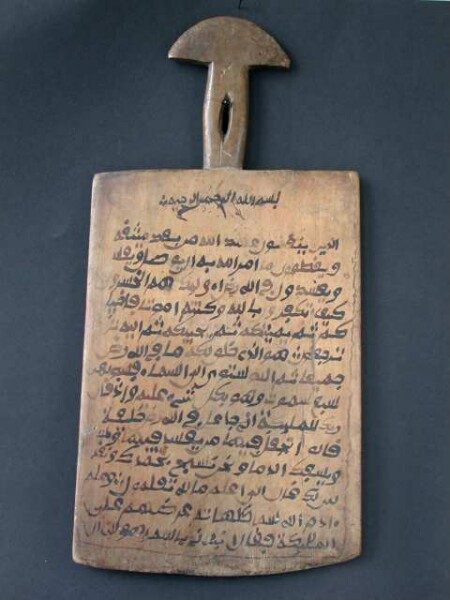 بسم الله الرحمن الرحيم
الذين ينقضون عهد الله من بعد ميثقه
ويقطعون ما امر الله به ان يوصل
ويفسدون في الارض اولئك هم الخسرون
كيف تكفرون بالله وكنتم اموتا فاحيا
كم ثم يميتكم ثم يحييكم ثم اليه
ترجعون هو الذي خلق لكم ما في الارض
جميعا ثم استوى الى السماء فسويهن
سبع سموت وهو بكل شيء عليم واذ قال
ربك للملئكة اني جاعل في الارض خليفة
قالوا اتجعل فيها من يفسد فيها
ويسفك الدماء ونحن نسبح بحمدك ونقد
س لك قال اني اعلم ما لا تعلمون وعلم
ادم الاسماء كلها ثم عرضهم على
الملئكة فقال انبئوني باسماء هؤلاء ان